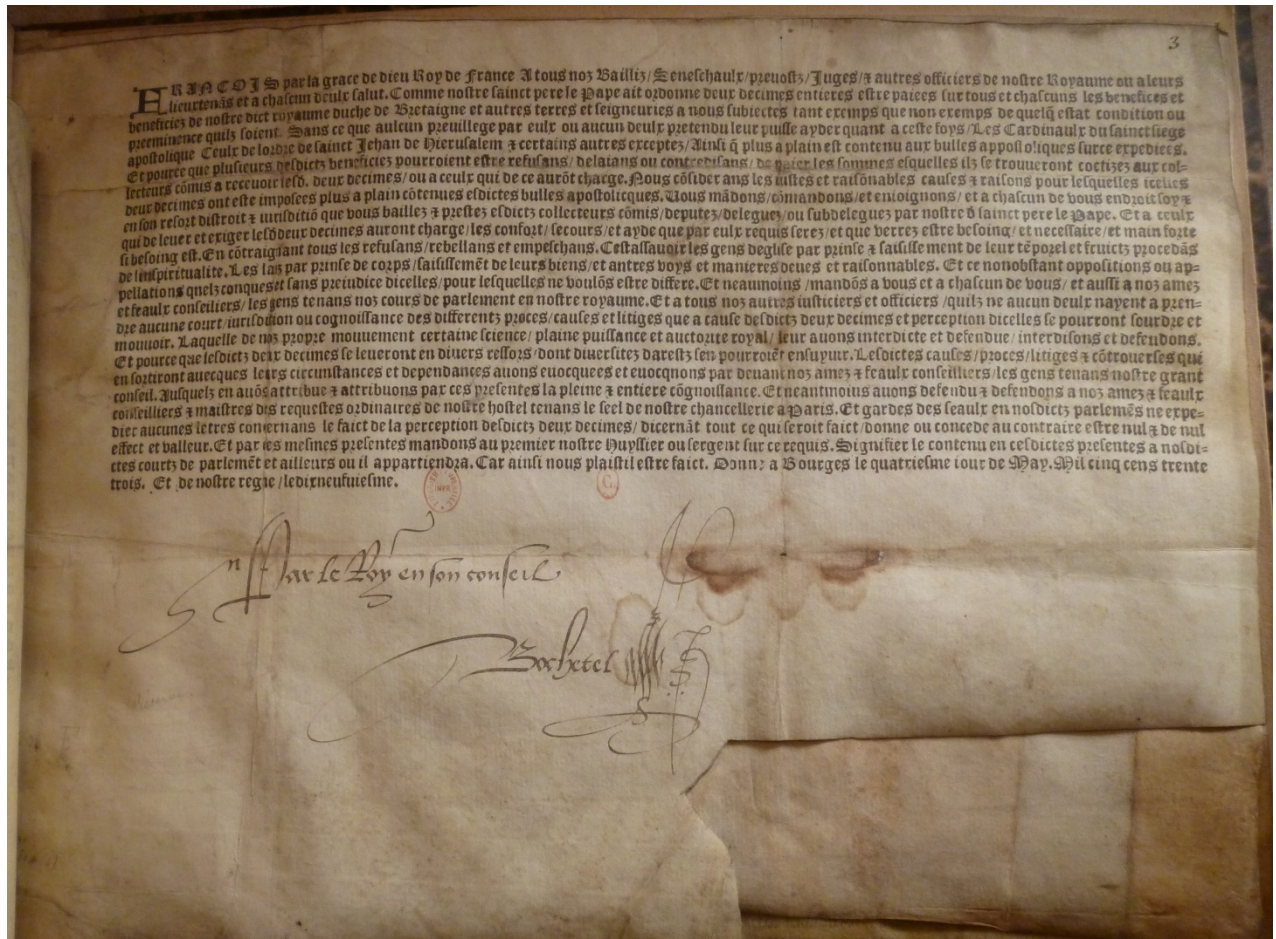 3
FRANCOIS par la grace de dieu Roy de France A tous noz Bailliz/Seneschaulx/preuostz/Juges/⁊ autres officiers de nostre Royaume ou a leurs
lieutenãs et a chascun deulx salut. Comme nostre sainct pere le Pape ait ordonne deux decimes entieres estre paiees sur tous et chascuns les benefices et
beneficiez de nostre dict royaume duche de Bretaigne et autres terres et seigneuries a nous subiectes tant exemps que non exemps de quelq̃ estat condition ou
preeminence quilz soient. Sans ce que aulcun preuillege par eulx ou aucun deulx pretendu leur puisse ayder quant a ceste foys/Les Cardinaulx du sainct siege
apostolique Ceulx de lordre de sainct Jehan de Hierusalem ⁊ certains autres exceptez/Ainsi q̃ plus a plain est contenu aux bulles appostoliques surce expediees.
Et pource que plusieurs desdictz beneficiez pourroient estre refusans/delaians ou contredisans/de paier les sommes esquelles ilz se trouueront coctizez aux col-
lecteurs cõmis a receuoir lesd. deux decimes/ou a ceulx qui de ce aurõt charge. Nous cõsiderans les iustes et raisõnables causes ⁊ raisons pour lesquelles icelles
deux decimes ont este imposees plus a plain cõtenues esdictes bulles apostolicques. Vous mãdons/cõmandons/et enioignons/et a chascun de vous endroit soy ⁊
en son resort distroit ⁊ iurisditiõ que vous baillez ⁊ prestez esdictz collecteurs cõmis/deputez/deleguez/ou subdeleguez par nostre d̃ sainct pere le Pape. Et a ceulx
qui de leuer et exiger lesd̃ deux decimes auront charge/les confort/secours/et ayde que par eulx requis serez/et que verrez estre besoing/et necessaire/et main forte
si besoing est. En cõtraignant tous les refusans/rebellans et empeschans. Cestassauoir les gens deglise par prinse ⁊ saisissement de leur tẽporel et fruictz procedãs
de linspiritualite. Les laz par prinse de corps/saisissemẽt de leurs biens/et antres voys et manieres deues et raisonnables. Et ce nonobstant oppositions ou ap-
pellations quelzconques et sans preiudice dicelles/pour lesquelles ne voulõs estre differe. Et neaumoins/mandõs a vous et a chascun de vous/et aussi a noz amez
et feaulx conseilliers/les gens tenans noz cours de parlement en nostre royaume. Et a tous noz autres iusticiers et officiers/quilz ne aucun deulx nayent a pren-
dre aucune court/iurisdition ou cognoissance des differentz proces/causes et litiges que a cause desdictz deux decimes et perception dicelles se pourront sourdre et
mouuoir. Laquelle de noz propre mouuement certaine science/plaine puissance et auctorite royal/leur auons interdicte et defendue/interdisons et defendons.
Et pource que lesdictz deux decimes se leueront en diuers ressors/dont diuersitez darestz sen pourroiẽt ensuyuir. Lesdictes causes/proces/litiges ⁊ cõtrouerses qui
en sortiront auecques leurs circunstances et dependances auons euocquees et euocquons par deuant noz amez ⁊ feaulx conseilliers/les gens tenans nostre grant
conseil. Ausquelz en auõs attribue ⁊ attribuons par ces presentes la pleine ⁊ entiere cõgnoissance. Et neantmoins auons defendu ⁊ defendons a noz amez ⁊ feaulx
conseilliers ⁊ maistres des requestes ordinaires de nostre hostel tenans le seel de nostre chancellerie a Paris. Et gardes des seaulx en nosdictz parlemẽs ne expe-
dier aucunes letres concernans le faict de la perception desdictz deux decimes/dicernãt tout ce qui seroit faict/donne ou concede au contraire estre nul ⁊ de nul
effect et valleur. Et par ces mesmes presentes mandons au premier nostre Huyssier ou sergent sur ce requis. Signifier le contenu en cesdictes presentes a nosdi-
ctes courtz de parlemẽt et ailleurs ou il appartiendra. Car ainsi nous plaistil estre faict. Donne a Bourges le quatriesme iour de May. Mil cinq cens trente
trois. Et de nostre regne/ledixneufuiesme.
C.
Par le Roy en son conseil
Bochetel